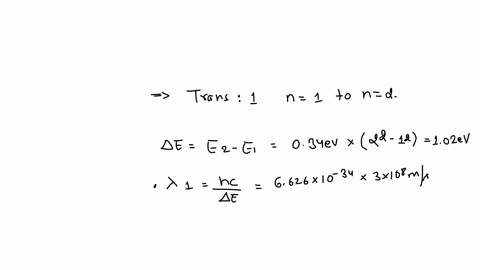 => Trans : 1 n = 1 to n = d.
ΔE = E2 - E1 = 0.34ev × (2d - 12) = 1.02eV
. λ 1 = hc/ΔE = 6.626×10-34 × 3×108 m/s